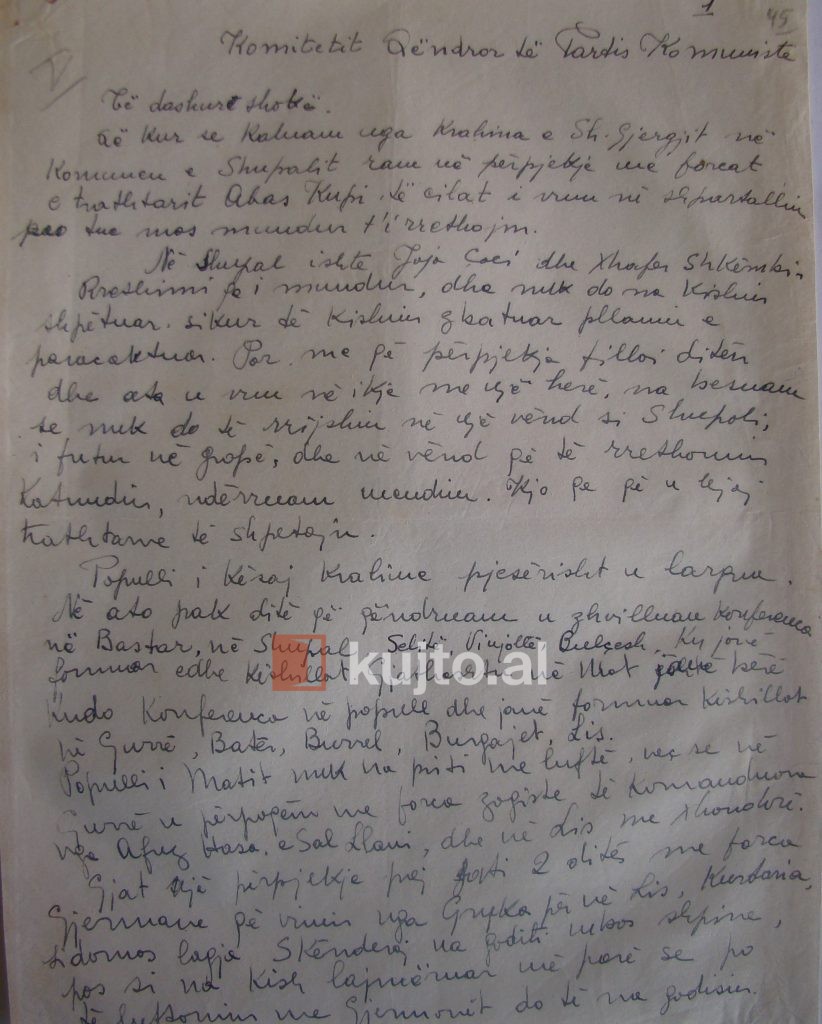 1
45
V
Komitetit Qëndror të Partis Komuniste
Të dashurë shokë.
Që kur se kaluam nga Krahina e Sh. Gjergjit në
Komunen e Shupalit ram në përpjekje me forcat
e trathtarit Abas Kupi të cilat i vum në shpartallim
por tue mos mundur t'i rrethojm.
Në Shupal ishte Jaja Caci dhe Xhafer Shkëmbi.
Rrethimi qe i mundur, dhe nuk do na kishin
shpëtuar sikur të kishim zbatuar pllanin e
paracaktuar. Por me që përpjekja filloi ditën
dhe ata u vun në ikje me një herë, na besuam
se nuk do të rrijshin në një vënd si Shupali,
i futur në gropë, dhe në vënd që të rrethonim
Katundin, ndërruam mendim. Kjo qe që u lejoj
trathtarve të shpetojn.
Populli i Kësaj Krahine pjesërisht u largua.
Në ato pak ditë që qëndruam u zhvilluan Konferenca
në Bastar, në Shupal, Selitë, Vinjollë Bulçesh, Ky janë
formuar edhe Këshillat. Gjithashtu në Mat janë bërë
kudo Konferenca në popull dhe janë formuar Këshillat
në Gurrë, Batër, Burrel, Burgajet, Lis.
Populli i Matit nuk na priti me luftë, veç se në
Gurrë u përpoqëm me forca zogiste të komanduara
nga Afuz Hasa e Sal Llani, dhe në Lis me Xhandrë.
Gjat një përpjekje prej 2 ditës me forca
Gjermane që vinin nga Gryka për në Lis, Kurdaria,
sidomos lagja Skënderaj na goditi mbas shpine,
pas si na kish lajmëruar më parë se po
të luftonim me Gjermanët do të na godisin.
kujto.al